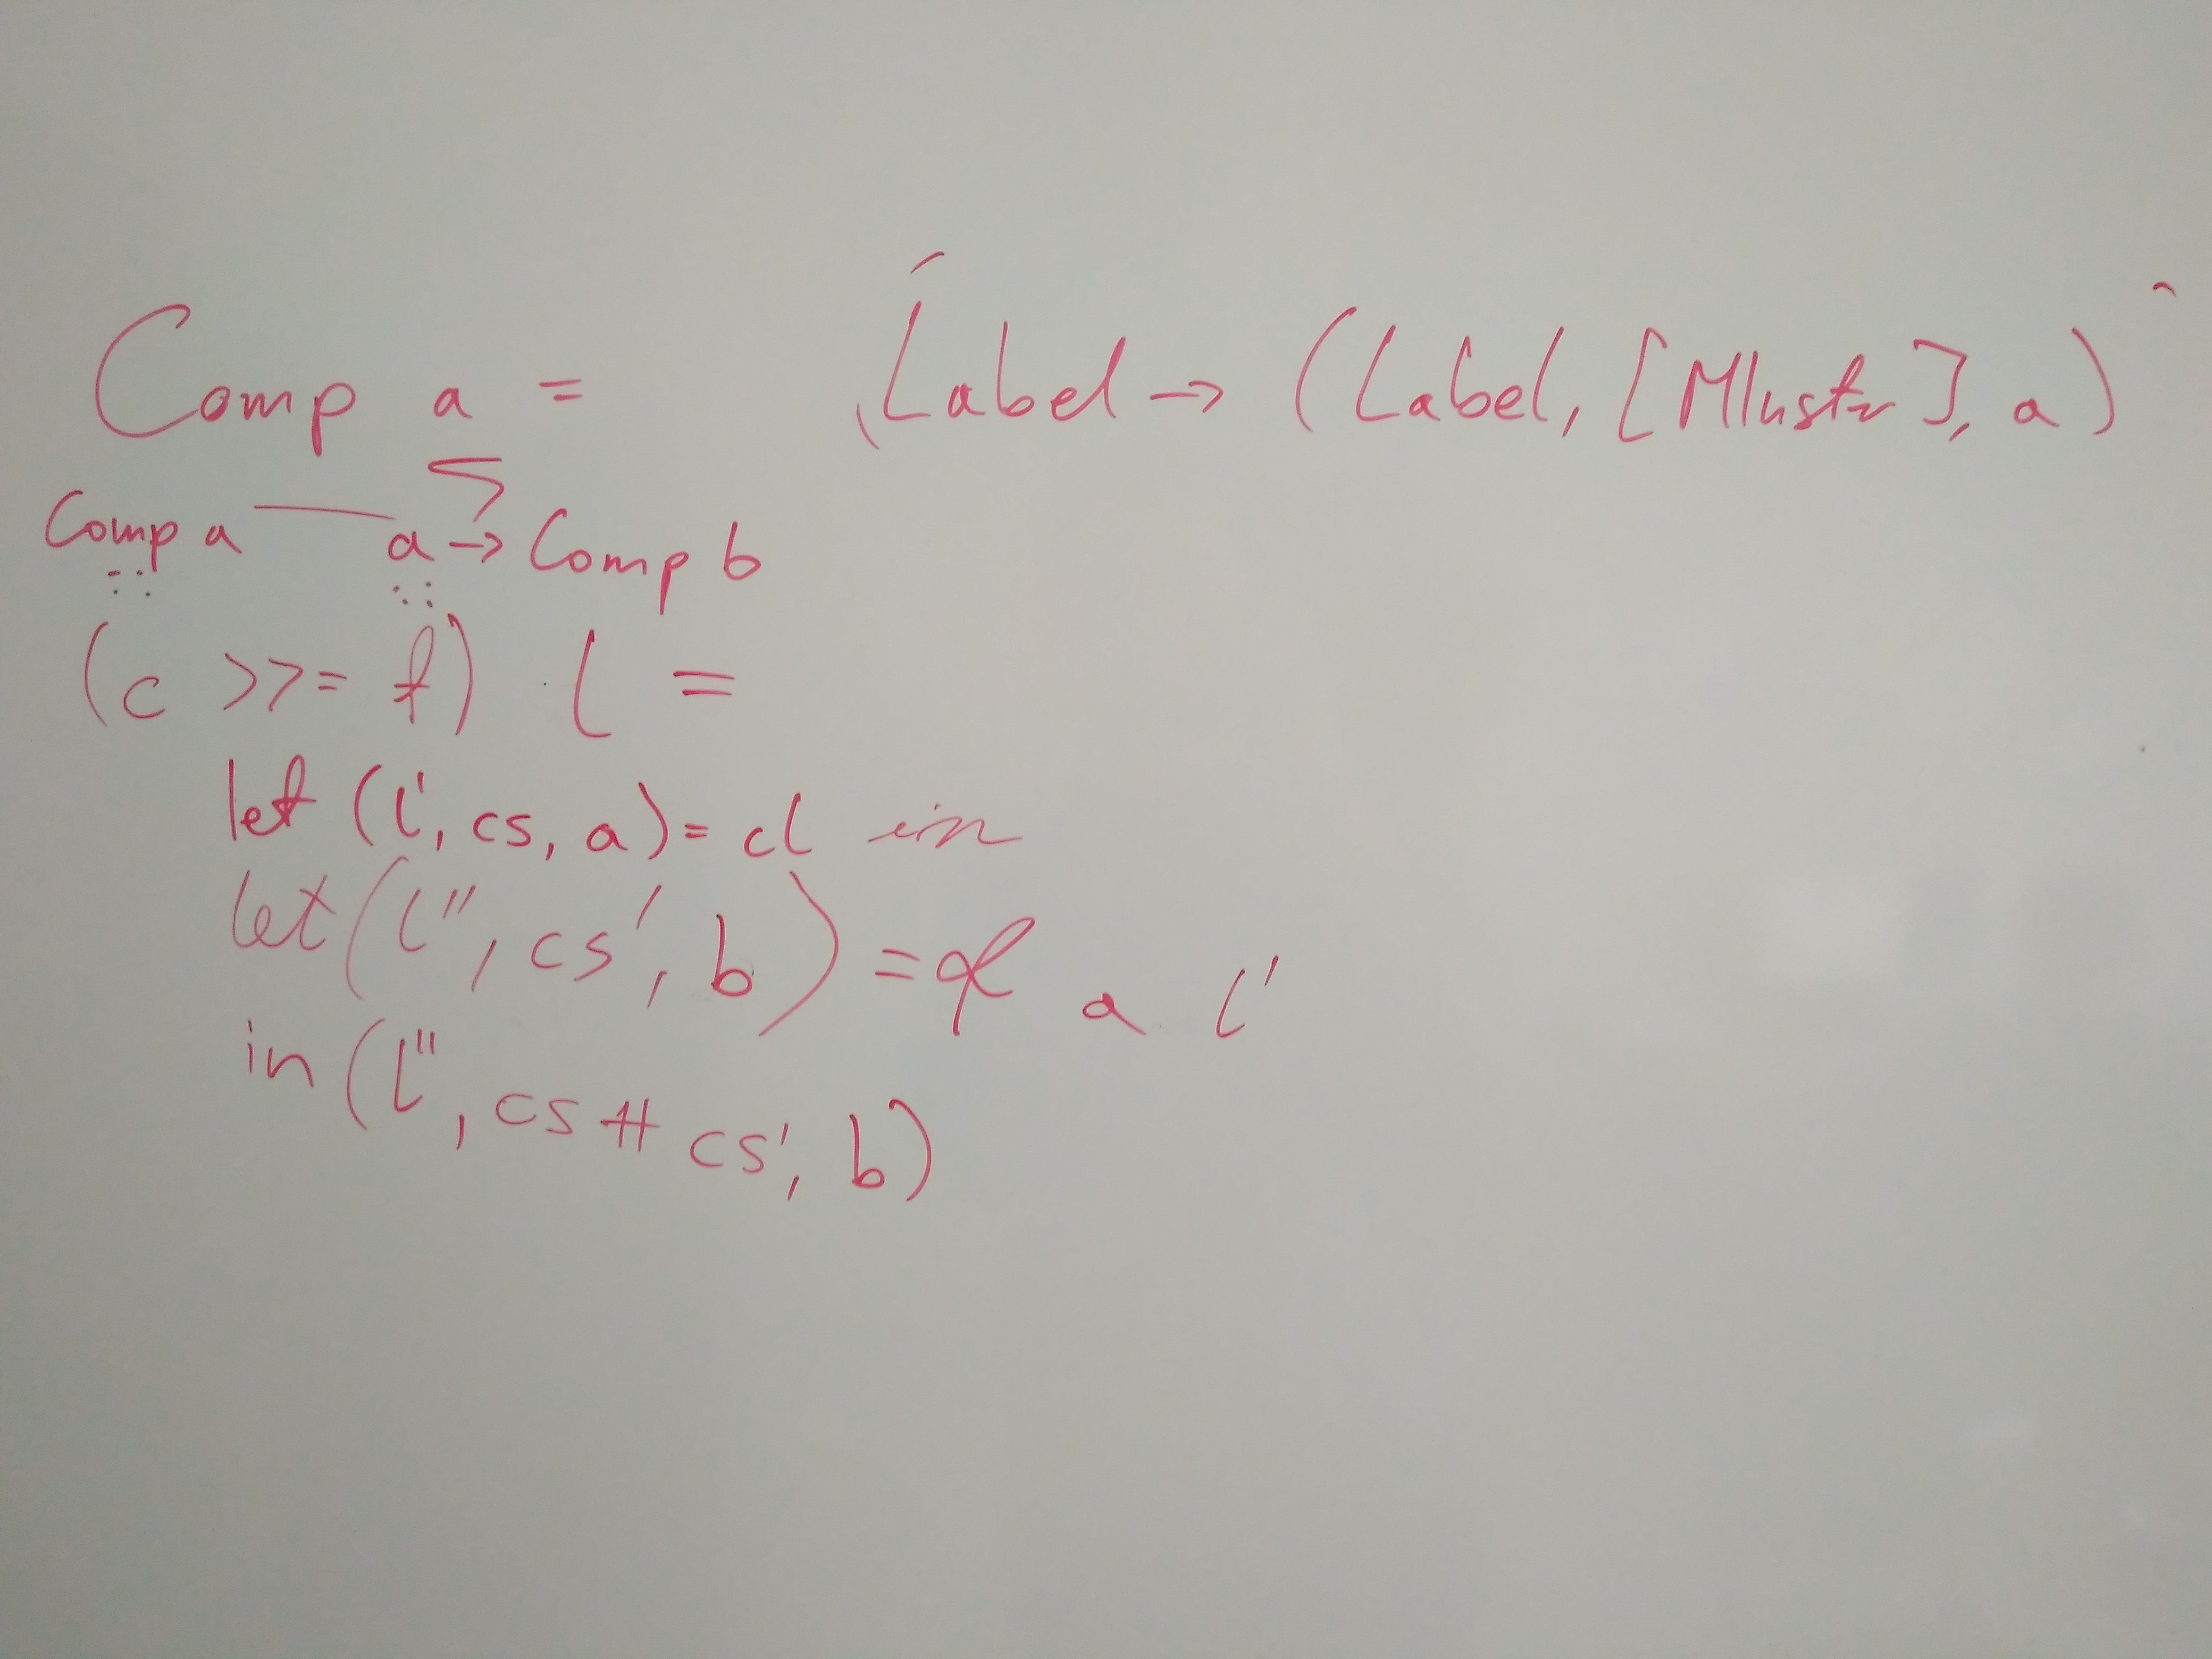 Comp a = Label -> (Label, [MInstr], a)
Comp a a -> Comp b
:: ::
(c >>= f) l =
let (l', cs, a) = cl in
let (l'', cs', b) = f a l'
in (l'', cs ++ cs', b)